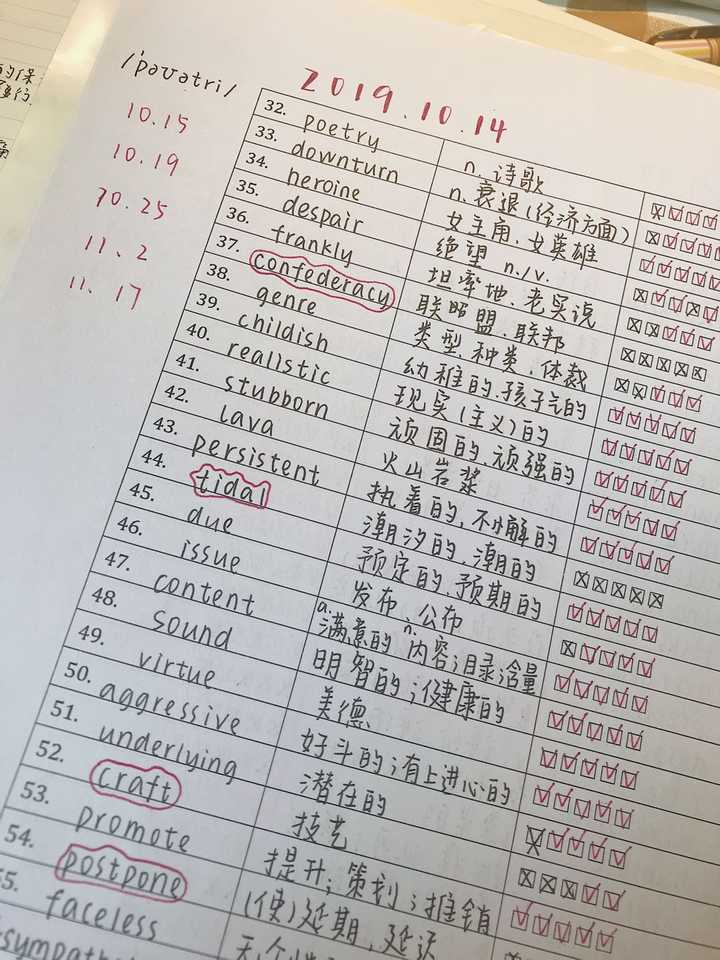 /ˈpəʊətri/
2019.10.14
10.15
10.19
10.25
11.2
11.17
32. poetry n. 诗歌
33. downturn n. 衰退(经济方面)
34. heroine 女主角、女英雄
35. despair 绝望 n./v.
36. frankly 坦率地、老实说
37. confederacy 联盟、联邦
38. genre 类型、种类、体裁
39. childish 幼稚的、孩子气的
40. realistic 现实(主义)的
41. stubborn 顽固的、顽强的
42. lava 火山岩浆
43. persistent 执着的,不懈的
44. tidal 潮汐的,潮的
45. due 预定的、预期的
46. issue 发布、公布
47. content a. 满意的 n. 内容;目录;含量
48. sound 明智的;健康的
49. virtue 美德
50. aggressive 好斗的;有上进心的
51. underlying 潜在的
52. craft 技艺
53. promote 提升;策划;推销
54. postpone (使)延期,延迟
55. faceless